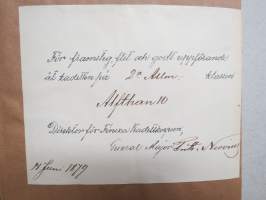 För framsteg, flit och godt uppförande
åt kadetten på 2a Allm. klassen
Alfthan 10
Direktor för Finska Kadettkorpsen,
General Major Frith. Neovius
Juni 1879